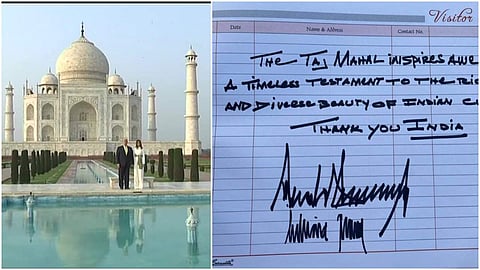 Visitor
Date Name & Address Contact No.
THE TAJ MAHAL INSPIRES AWE
A TIMELESS TESTAMENT TO THE RIC
AND DIVERSE BEAUTY OF INDIAN C
THANK YOU INDIA